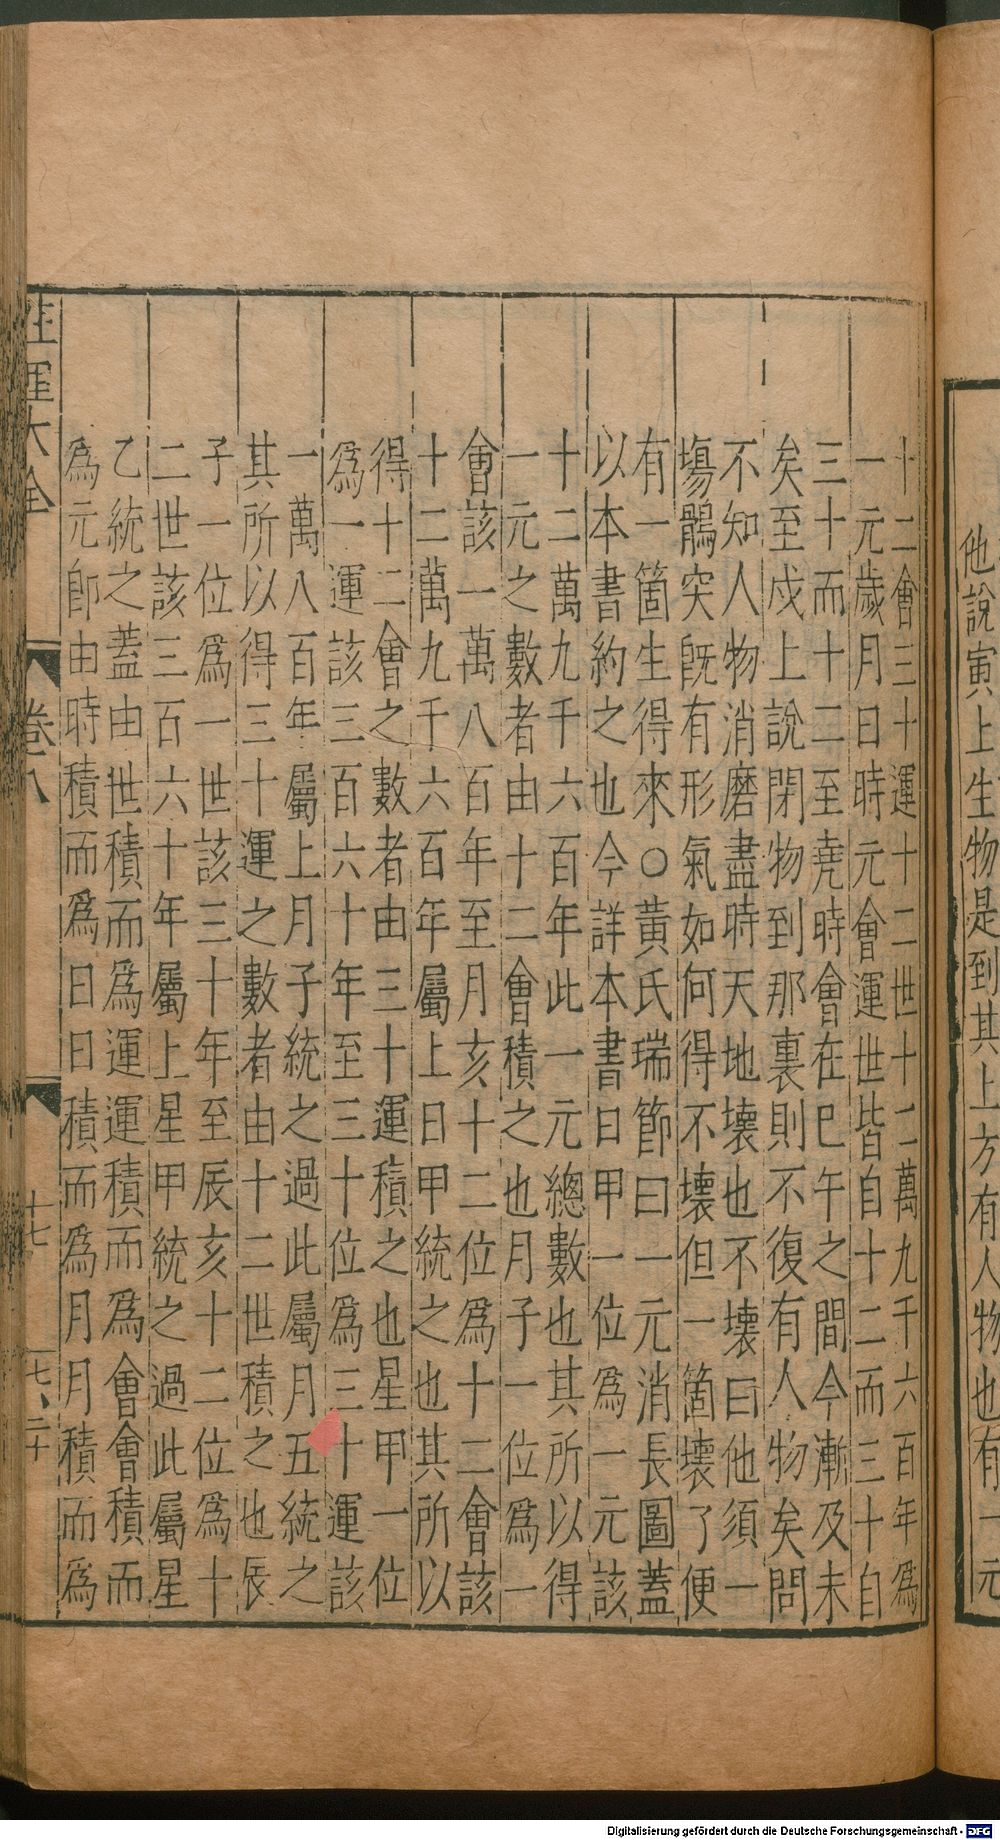 他說寅上生物是到其上方有人物也有一元
十二會三十運十二世十二萬九千六百年爲
一元歲月日時元會運世皆自十二而三十自
三十而十二至堯時會在巳午之間今漸及未
矣至戌上說閉物到那裏則不復有人物矣問
不知人物消磨盡時天地壞也不壞曰他須一
塲鶻突旣有形氣如何得不壞但一箇壞了便
有一箇生得來○黃氏瑞節曰一元消長圖蓋
以本書約之也今詳本書日甲一位爲一元該
十二萬九千六百年此一元總數也其所以得
一元之數者由十二會積之也月子一位爲一
會該一萬八百年至月亥十二位爲十二會該
十二萬九千六百年屬上日甲統之也其所以
得十二會之數者由三十運積之也星甲一位
爲一運該三百六十年至三十位爲三十運該
一萬八百年屬上月子統之過此屬月五統之
其所以得三十運之數者由十二世積之也辰
子一位爲一世該三十年至辰亥十二位爲十
二世該三百六十年屬上星甲統之過此屬星
乙統之蓋由世積而爲運運積而爲會會積而
爲元卽由時積而爲日日積而爲月月積而爲
性理大全
卷八
十七
七、二十
Digitalisierung gefördert durch die Deutsche Forschungsgemeinschaft - DFG